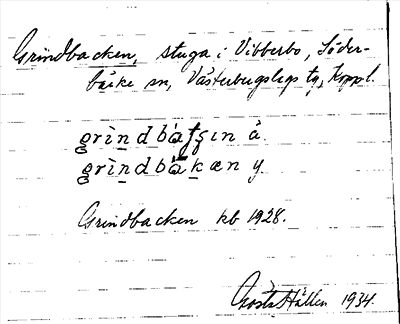 Grindbacken, stuga i Vibberbo, Söder-
bärke sn, Västerbergslags tg, Koppl.
grìndbàʃʂɪn ä.
grìndbàkæn y.
Grindbacken kb 1928.
Gösta Hållen 1934.